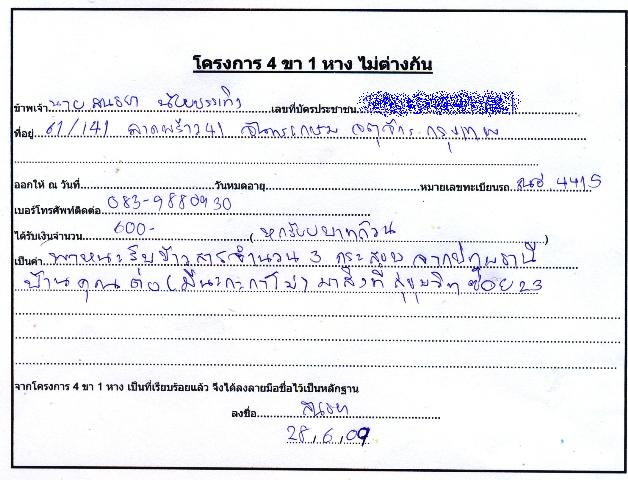 โครงการ 4 ขา 1 หาง ไม่ต่างกัน
ข้าพเจ้า นาย สนธยา เลขที่บัตรประชาชน
ที่อยู่ 61/141 ลาดพร้าว 41 จันทรเกษม จตุจักร กรุงเทพ
ออกให้ ณ วันที่ วันหมดอายุ หมายเลขทะเบียนรถ 4415
เบอร์โทรศัพท์ติดต่อ 083-9880930
ได้รับเงินจำนวน 600- (หกร้อยบาทถ้วน)
เป็นค่า พาหนะรับข้าวสารจำนวน 3 กระสอบ จากปทุมธานี
บ้านคุณต่อ (มีนะกะกาโม่) มาส่งที่ สุขุมวิท ซอย 23
จากโครงการ 4 ขา 1 หาง เป็นที่เรียบร้อยแล้ว จึงได้ลงลายมือชื่อไว้เป็นหลักฐาน
ลงชื่อ สนธยา
28.6.09